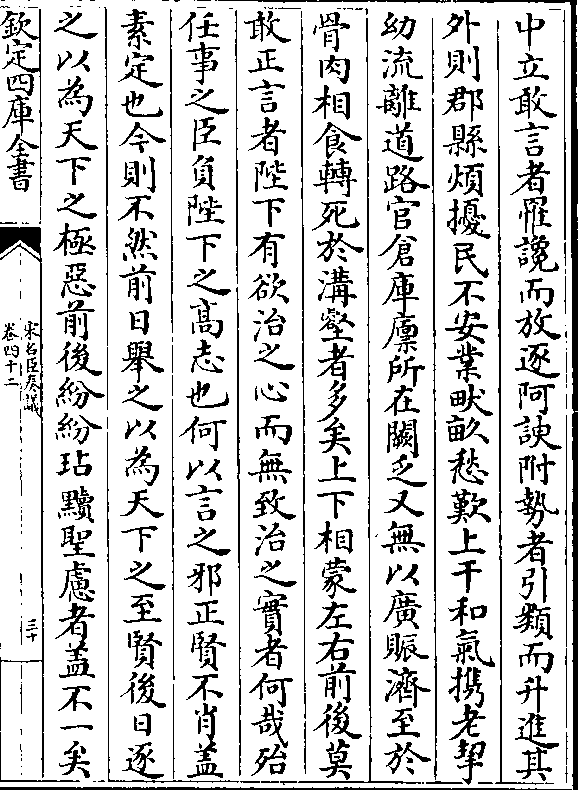 中立敢言者罹讒而放逐阿諛附勢者引類而升進其
外則郡縣煩擾民不安業畎畝愁歎上干和氣携老挈
幼流離道路官倉庫廩所在闕乏又無以廣賑濟至於
骨肉相食轉死於溝壑者多矣上下相蒙左右前後莫
敢正言者陛下有欲治之心而無致治之實者何哉殆
任事之臣負陛下之高志也何以言之邪正賢不肖蓋
素定也今則不然前日舉之以為天下之至賢後日逐
之以為天下之極惡前後紛紛玷黷聖慮者盖不一矣
欽定四庫全書
宋名臣奏議
卷四十二
三十